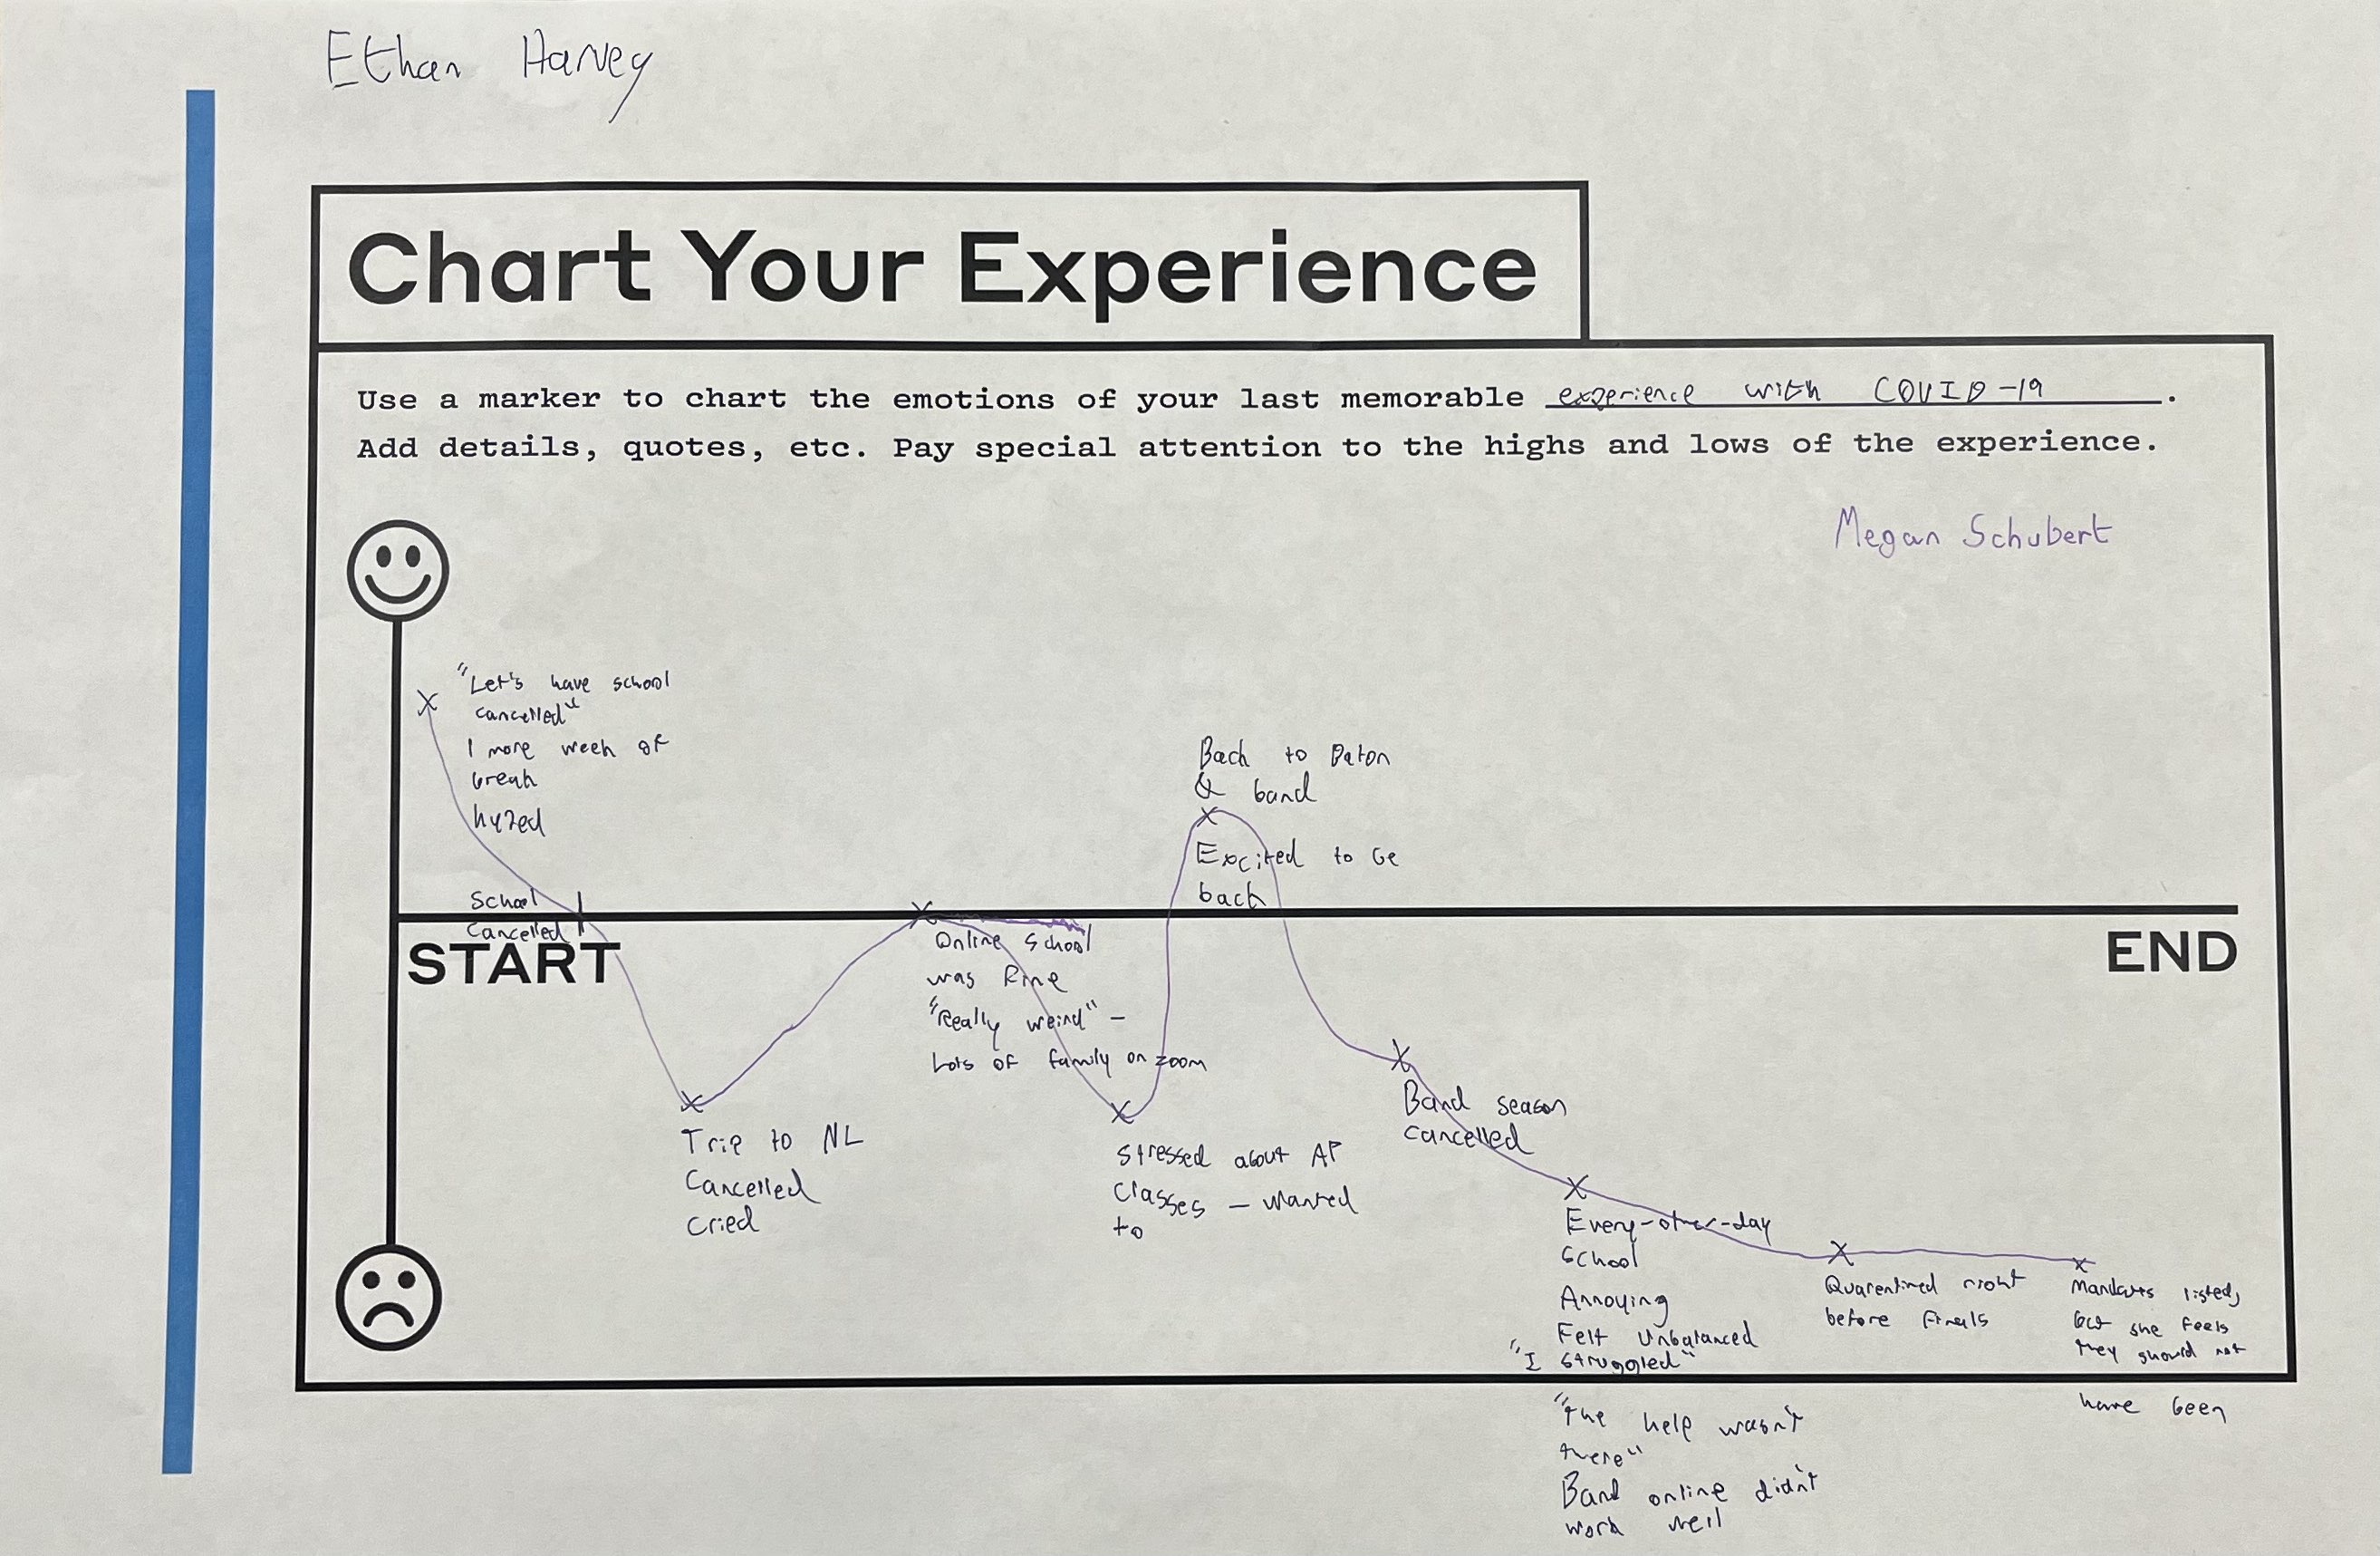 Ethan Harvey
Chart Your Experience
Use a marker to chart the emotions of your last memorable experience with COVID-19.
Add details, quotes, etc. Pay special attention to the highs and lows of the experience.
Megan Schubert
"Let's have school
cancelled"
1 more week of
break
School
Cancelled
START
END
Trip to NL
Cancelled
cried
Online school
was fine
"Really weird" –
Lots of family on zoom
Stressed about AP
classes – wanted
to
Back to
& band
Excited to be
back
Band season
cancelled
Every-other-day
School
Annoying
Felt Unbalanced
"I struggled"
"the help wasn't
there"
Band online didn't
work well
Quarentined right
before finals
Mandates listed,
but she feels
they should not
have been